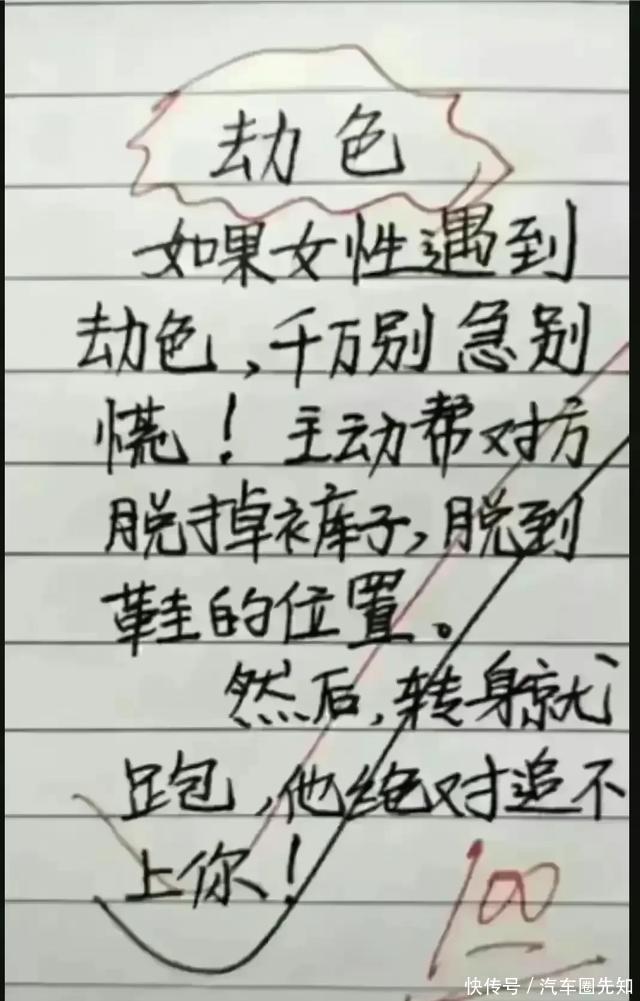 劫色
如果女性遇到
劫色,千万别急别
慌!主动帮对方
脱掉裤子,脱到
鞋的位置。
然后,转身就
跑,他绝对追不
上你!
100
快传号/汽车圈先知